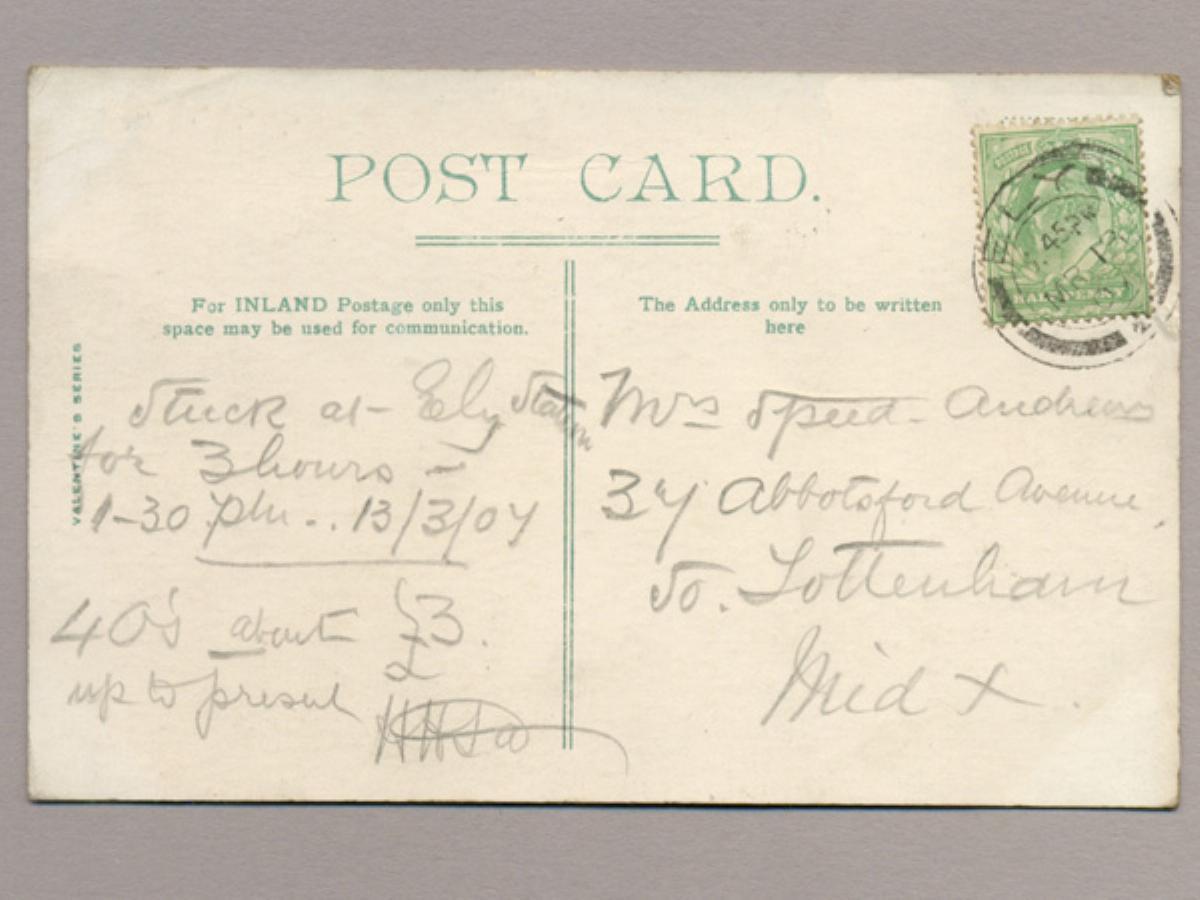 POST CARD.
For INLAND Postage only this
space may be used for communication.
The Address only to be written
here
VALENTINE'S SERIES
Stuck at Ely Station
for 3 hours –
1-30 pm .. 13/3/07
40's about £3.
up to present
Mrs Speed-Andrews
37 Abbotsford Avenue,
So. Tottenham
Midx.
ELY
45PM
MR 13
07
HALFPENNY